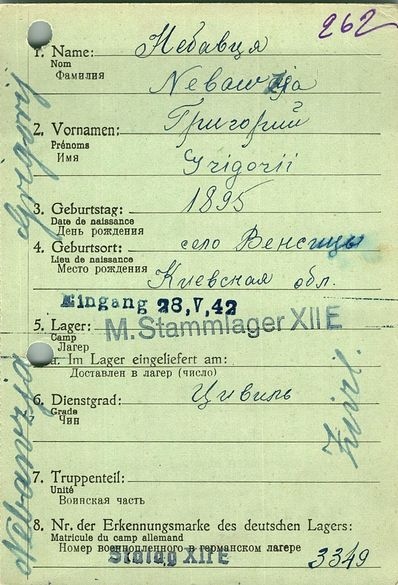 262
1. Name: Небавця
Nom
Фамилия
2. Vornamen: Григорий
Prénoms
Имя Grigorii
3. Geburtstag: 1895
Date de naissance
День рождения
4. Geburtsort: село
Lieu de naissance
Место рождения Киевская обл.
Eingang 28,V,42
5. Lager: M. Stammlager XII E
Camp
Лагер
a. Im Lager eingeliefert am:
Доставлен в лагер (число)
6. Dienstgrad: Цивиль
Grade
Чин
7. Truppenteil:
Unité
Воинская часть
8. Nr. der Erkennungsmarke des deutschen Lagers:
Matricule du camp allemand
Номер военнопленного в германском лагере
Stalag XII E 3349
Zivil.
Grigorij